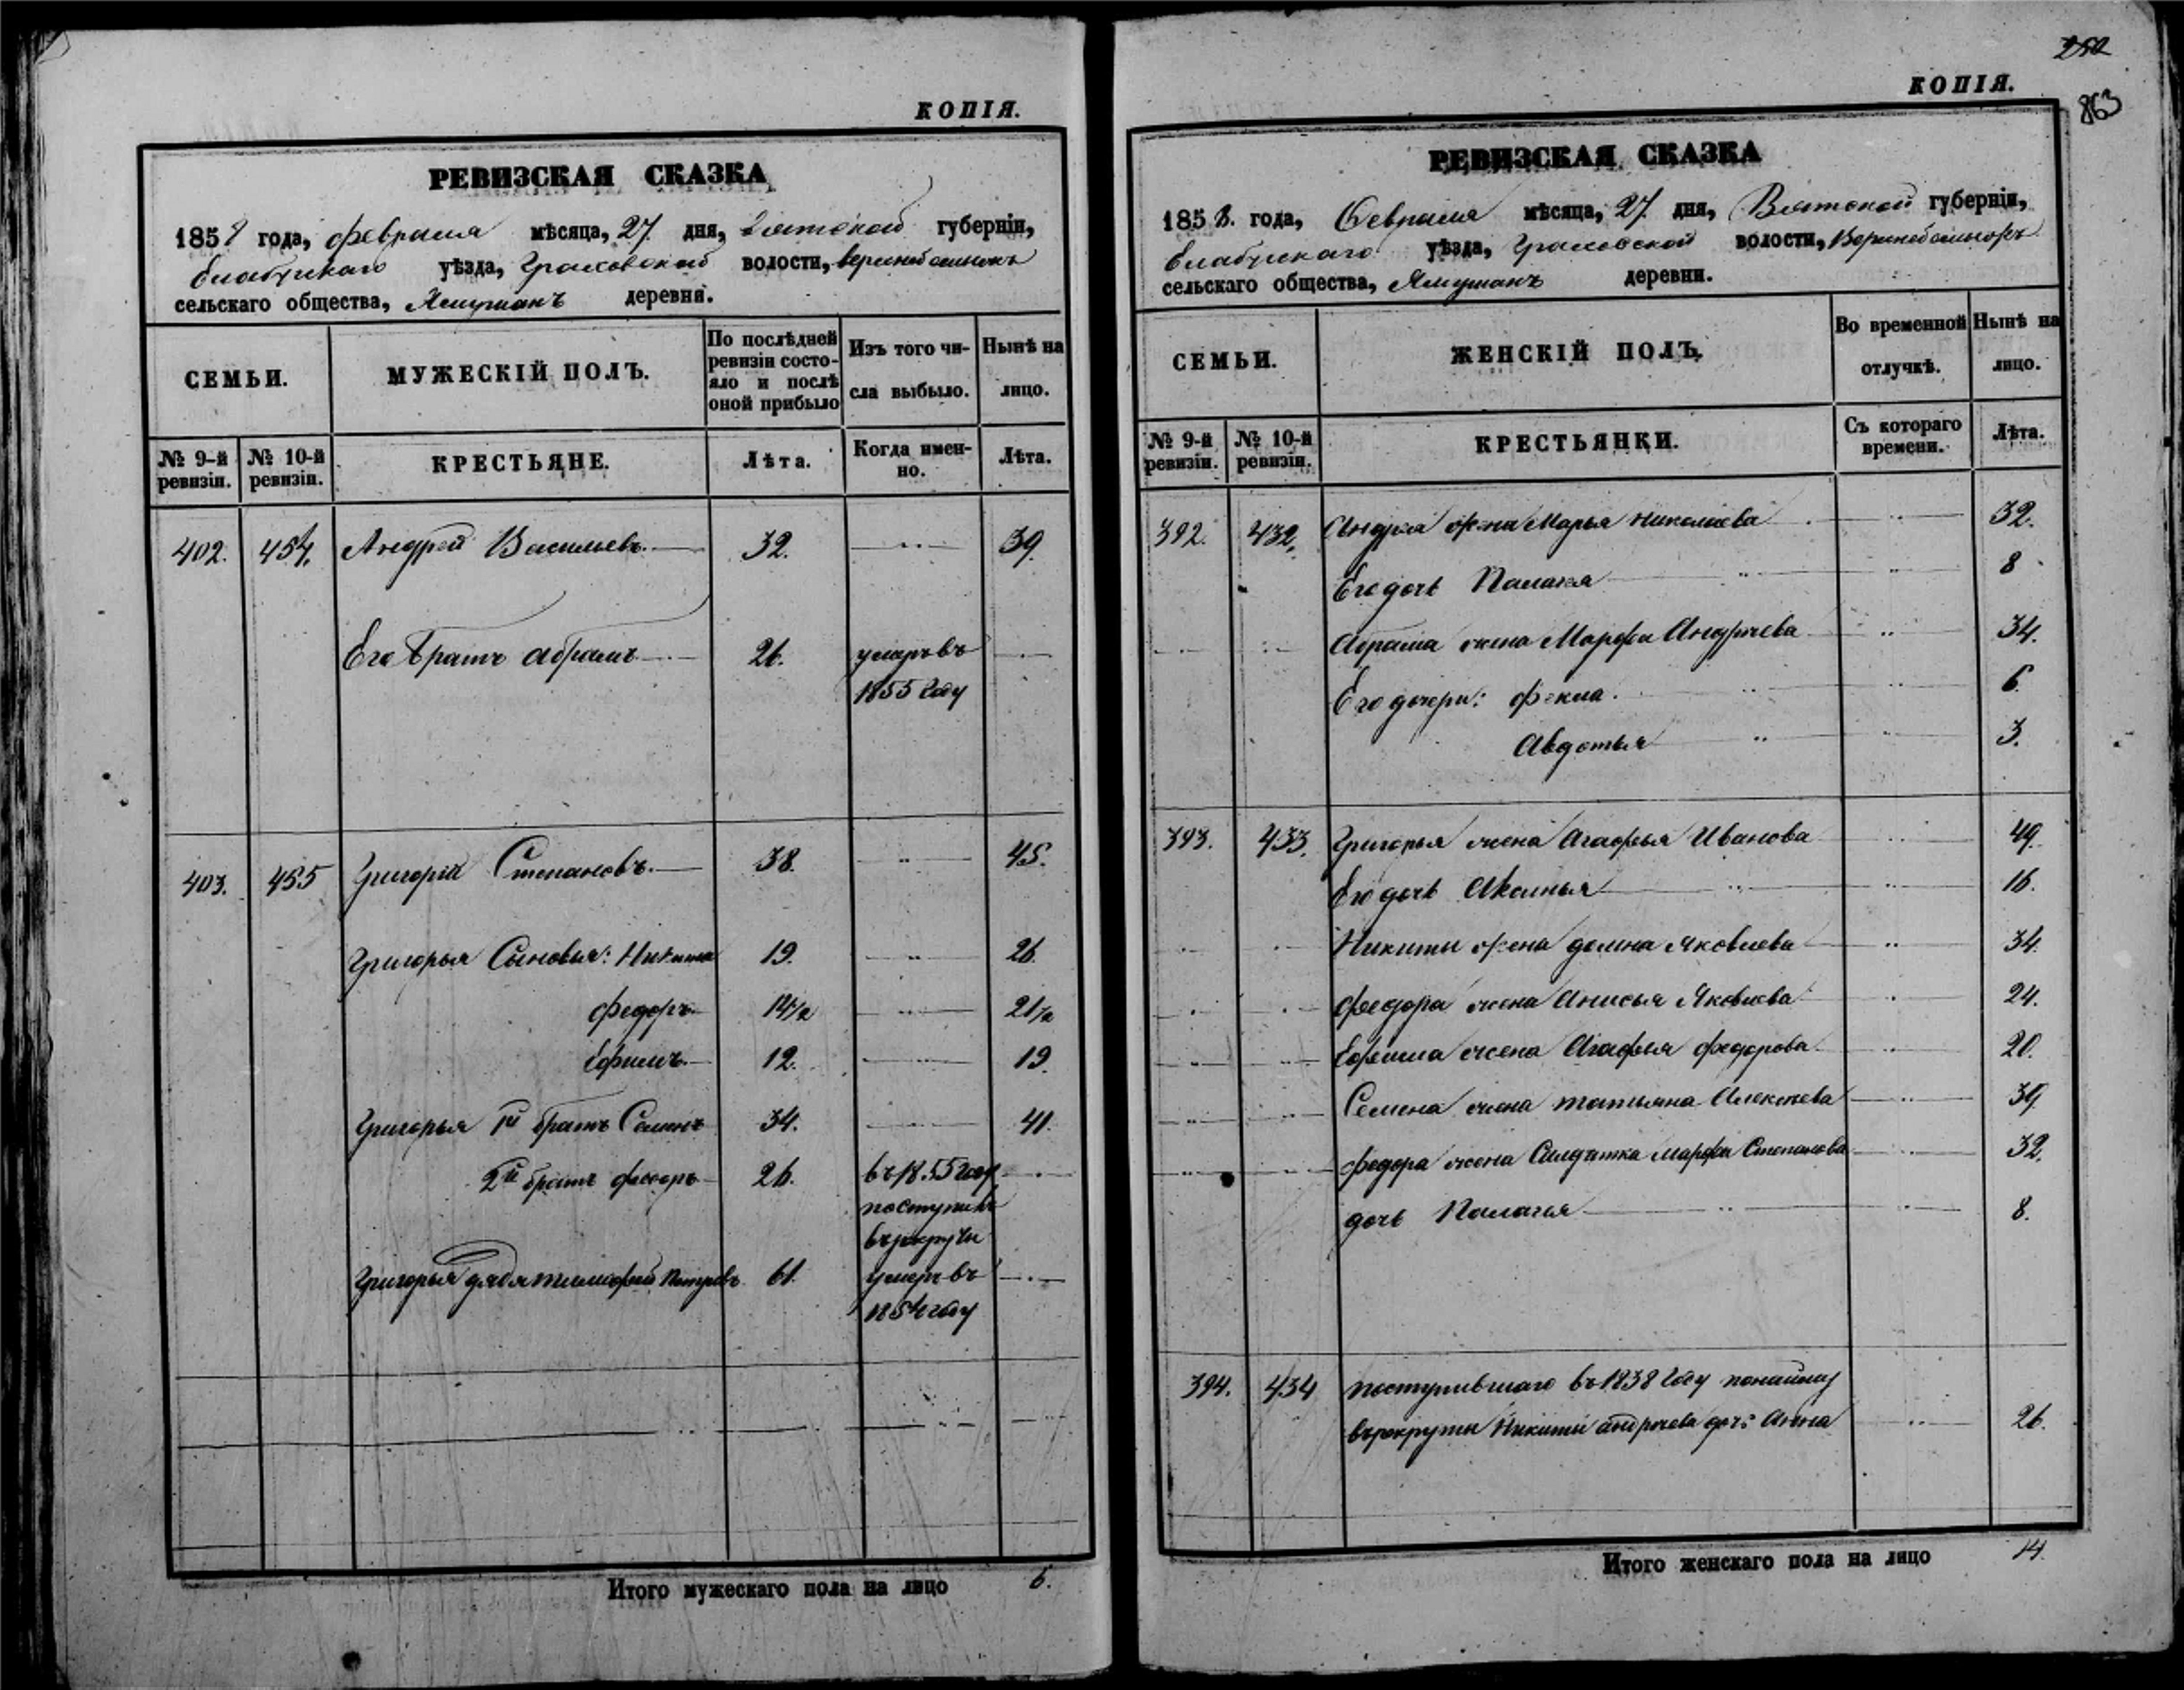 КОПІЯ.
РЕВИЗСКАЯ СКАЗКА
1858 года, февраля мѣсяца, 27 дня, Вятской губерніи,
Елабугскаго уѣзда, Граховской волости,
сельскаго общества, Ямушанъ деревни.
СЕМЬИ. МУЖЕСКІЙ ПОЛЪ. По послѣдней ревизіи состояло и послѣ оной прибыло Изъ того числа выбыло. Нынѣ на лицо.
№ 9-й ревизіи. № 10-й ревизіи. КРЕСТЬЯНЕ. Лѣта. Когда именно. Лѣта.
402. 454. Андрей Васильевъ. 32. 39.
Его братъ Абрамъ 26. умеръ въ
1855 году
403. 455 Григорій Степановъ. 38. 45.
Григорья Сыновья: Никита 19. 26.
Федоръ 14 1/2 21 1/2
Ефимъ 12. 19.
Григорья 1й братъ Семенъ 34. 41.
2й братъ Федоръ 26. въ 1855 году
поступилъ
въ рекруты
Григорья дядя Тимофей Петровъ 61. умеръ въ
1854 году
Итого мужескаго пола на лицо 6.
252
КОПІЯ.
863
РЕВИЗСКАЯ СКАЗКА
1858. года, Февраля мѣсяца, 27 дня, Вятской губерніи,
Елабугскаго уѣзда, Граховской волости,
сельскаго общества, Ямушанъ деревни.
СЕМЬИ. ЖЕНСКІЙ ПОЛЪ. Во временной отлучкѣ. Нынѣ на лицо.
№ 9-й ревизіи. № 10-й ревизіи. КРЕСТЬЯНКИ. Съ котораго времени. Лѣта.
392. 432. Андрея жена Марья Николаева 32.
Его дочь Палагея 8
Абрама жена Марфа Андреева 34.
Его дочери: Фекла. 6.
Авдотья 3.
393. 433. Григорья жена Агафья Иванова 49.
Его дочь Аксинья 16.
Никиты жена Домна Яковлева 34.
Федора жена Анисья Яковлева 24.
Ефима жена Агафья Федорова 20.
Семена жена Татьяна Алексѣева 39.
Федора жена Солдатка Марфа Степанова 32.
дочь Палагея 8.
394. 434 поступившаго въ 1838 году по найму
въ рекруты Никиты Андреева дочь Анна 26.
Итого женскаго пола на лицо 14.